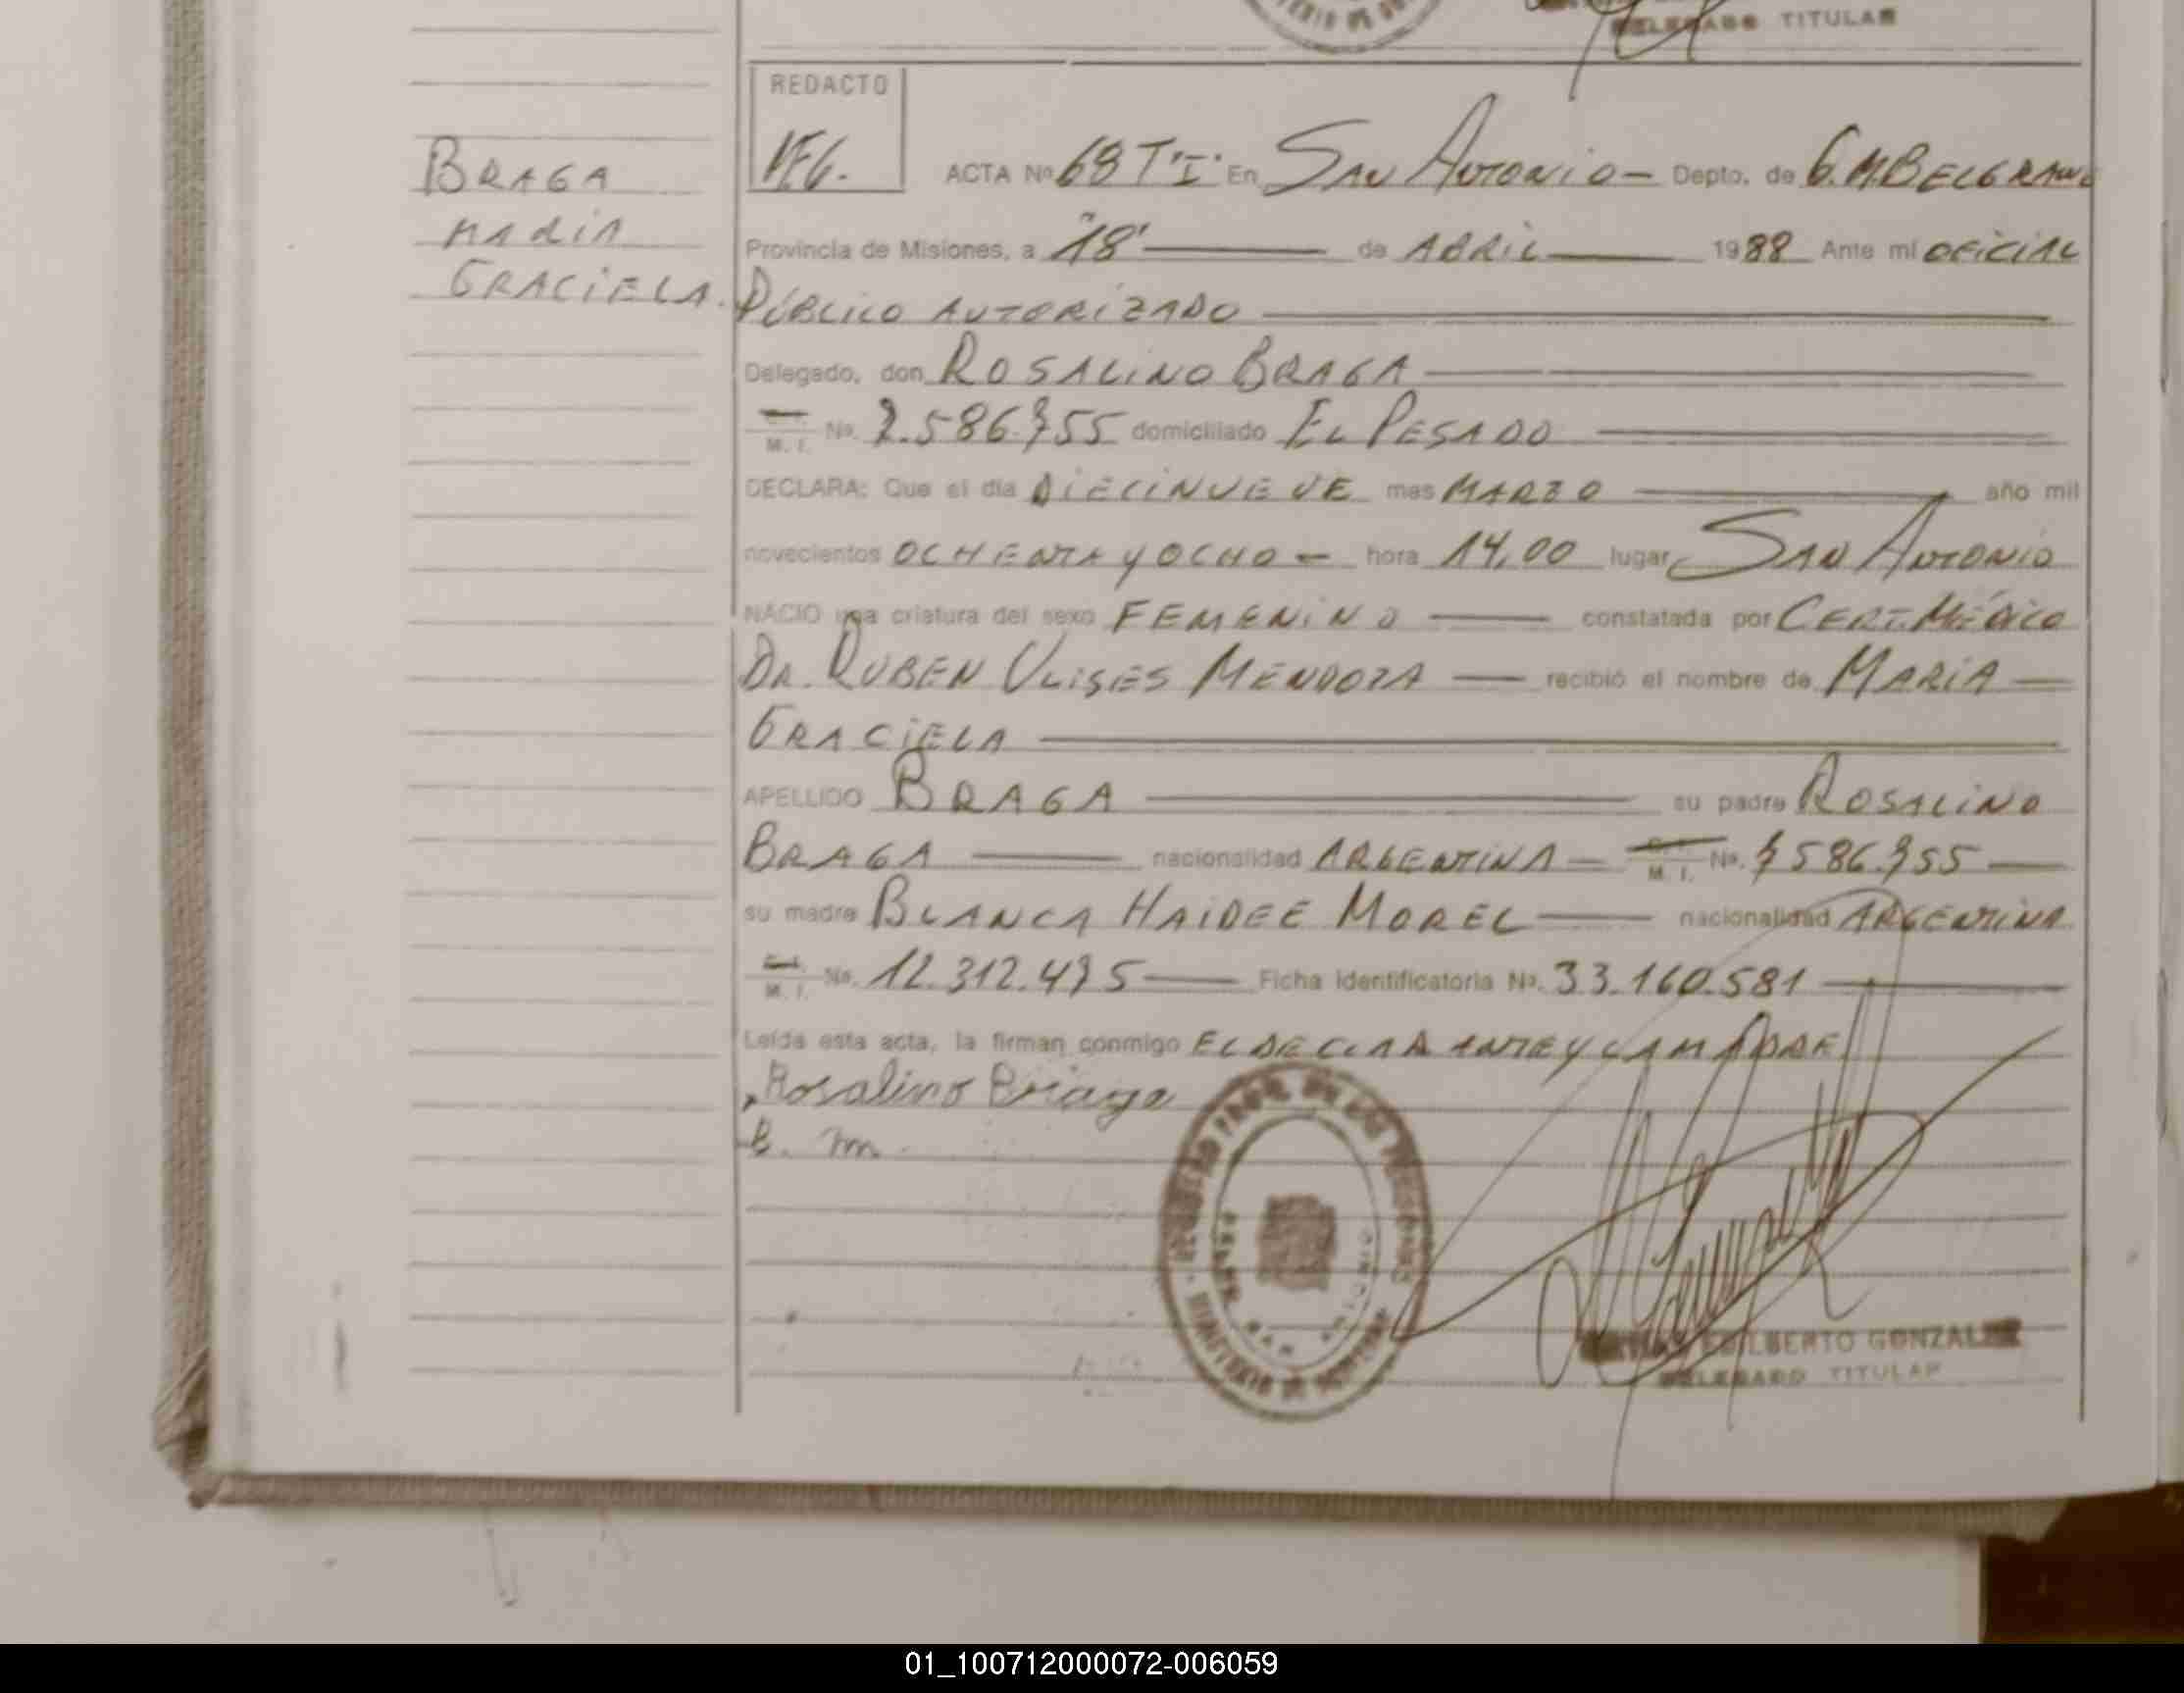 DELEGADO TITULAR
REDACTO
BRAGA
MARIA
GRACIELA.
ACTA Nº 68 T"I" En SAN ANTONIO - Depto. de G.M. BELGRANO
Provincia de Misiones, a "18" de ABRIL 1988 Ante mí OFICIAL
PÚBLICO AUTORIZADO
Delegado, don ROSALINO BRAGA
M. I. Nº. 7.586.755 domiciliado EL PESADO
DECLARA: Que el día DIECINUEVE mes MARZO año mil
novecientos OCHENTA Y OCHO - hora 14,00 lugar SAN ANTONIO
NACIO una criatura del sexo FEMENINO constatada por CERT. MÉDICO
DR. RUBEN ULISES MENDOZA recibió el nombre de MARIA
GRACIELA
APELLIDO BRAGA su padre ROSALINO
BRAGA nacionalidad ARGENTINA - M. I. Nº. 7586.755
su madre BLANCA HAIDEE MOREL nacionalidad ARGENTINA
M. I. Nº. 12.312.475 Ficha Identificatoria Nº. 33.160.581
Leída esta acta, la firman conmigo EL DECLARANTE Y LA MADRE
Rosalino Briaga
B. m.
EDILBERTO GONZALEZ
DELEGADO TITULAR
01_100712000072-006059